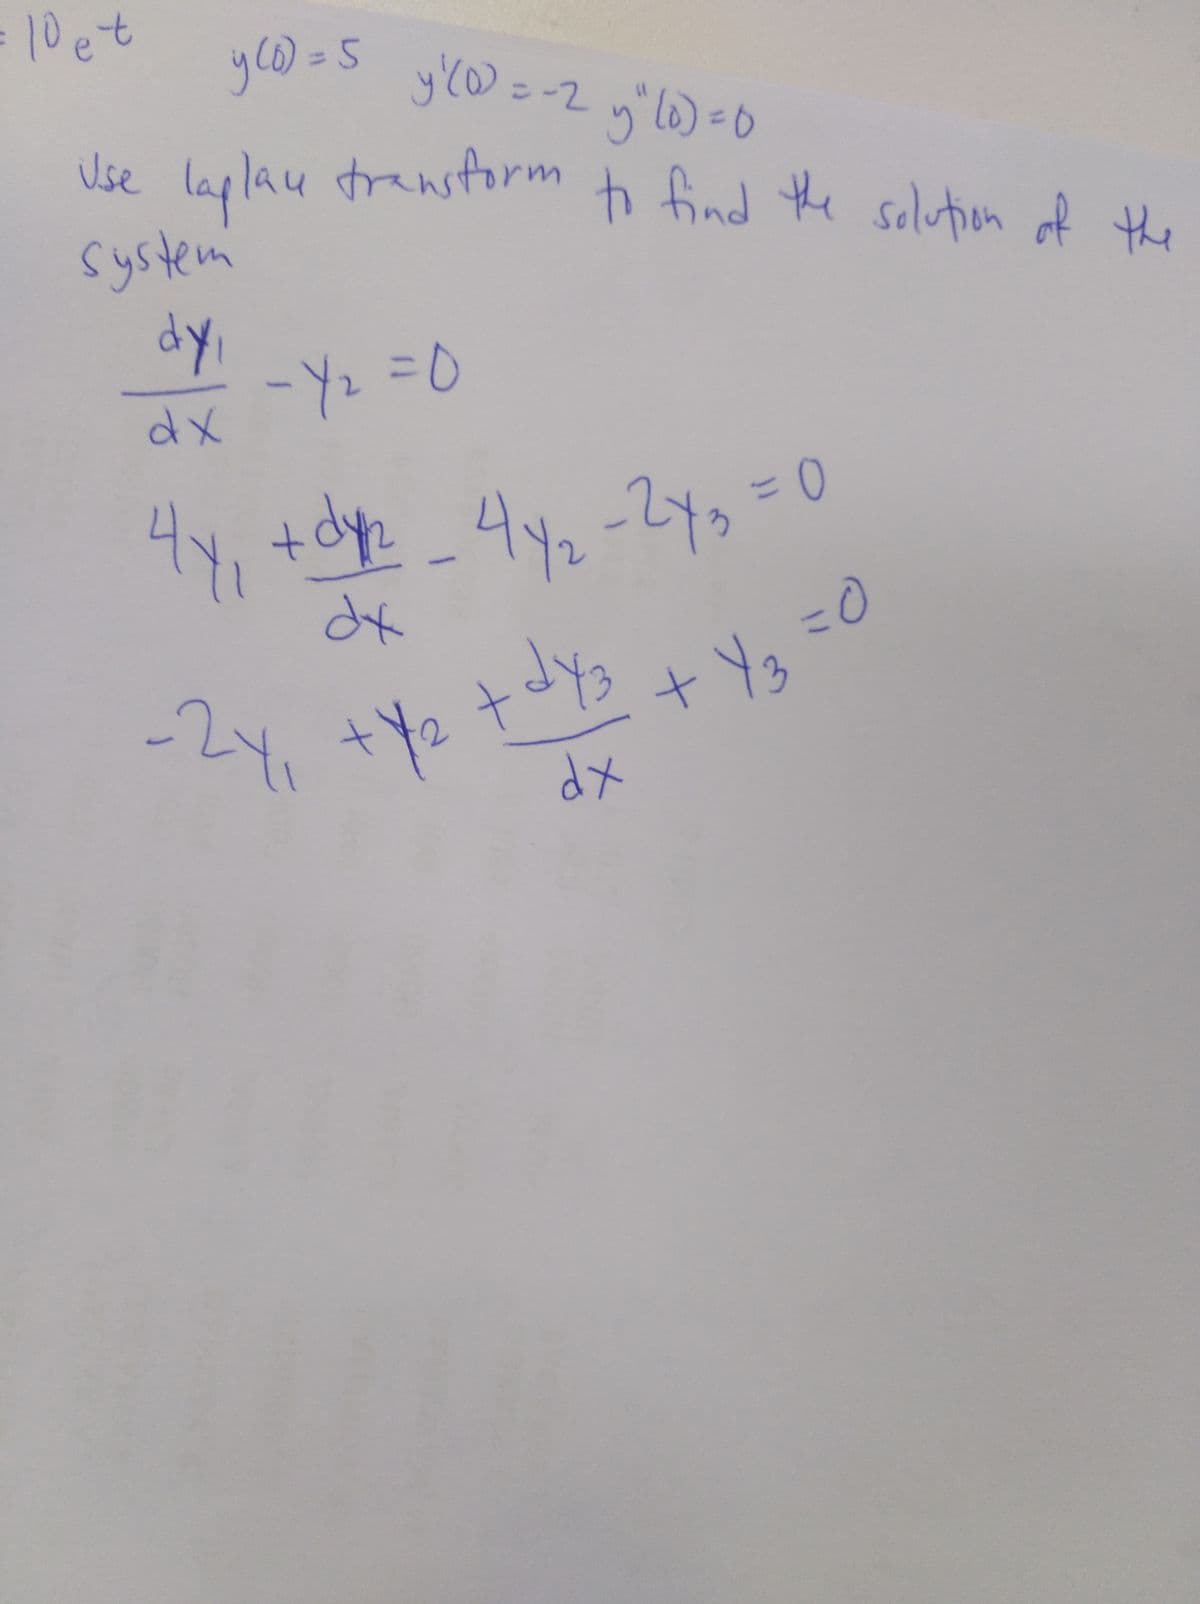 = 10 e^-t   y(0) = 5   y'(0) = -2   y"(0) = 0
Use laplau transform to find the solution of the
system
dy₁/dx - y₂ = 0
4y₁ + dy₂/dx - 4y₂ - 2y₃ = 0
-2y₁ + y₂ + dy₃/dx + y₃ = 0